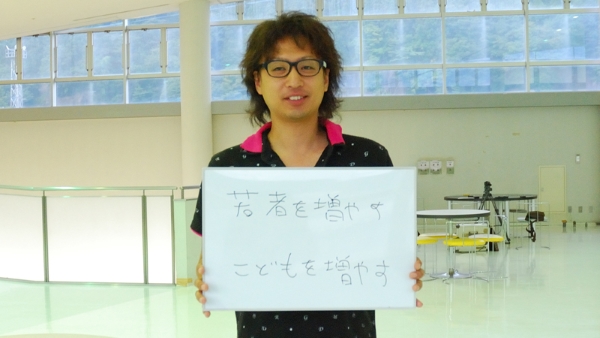 若者を増やす
こどもを増やす